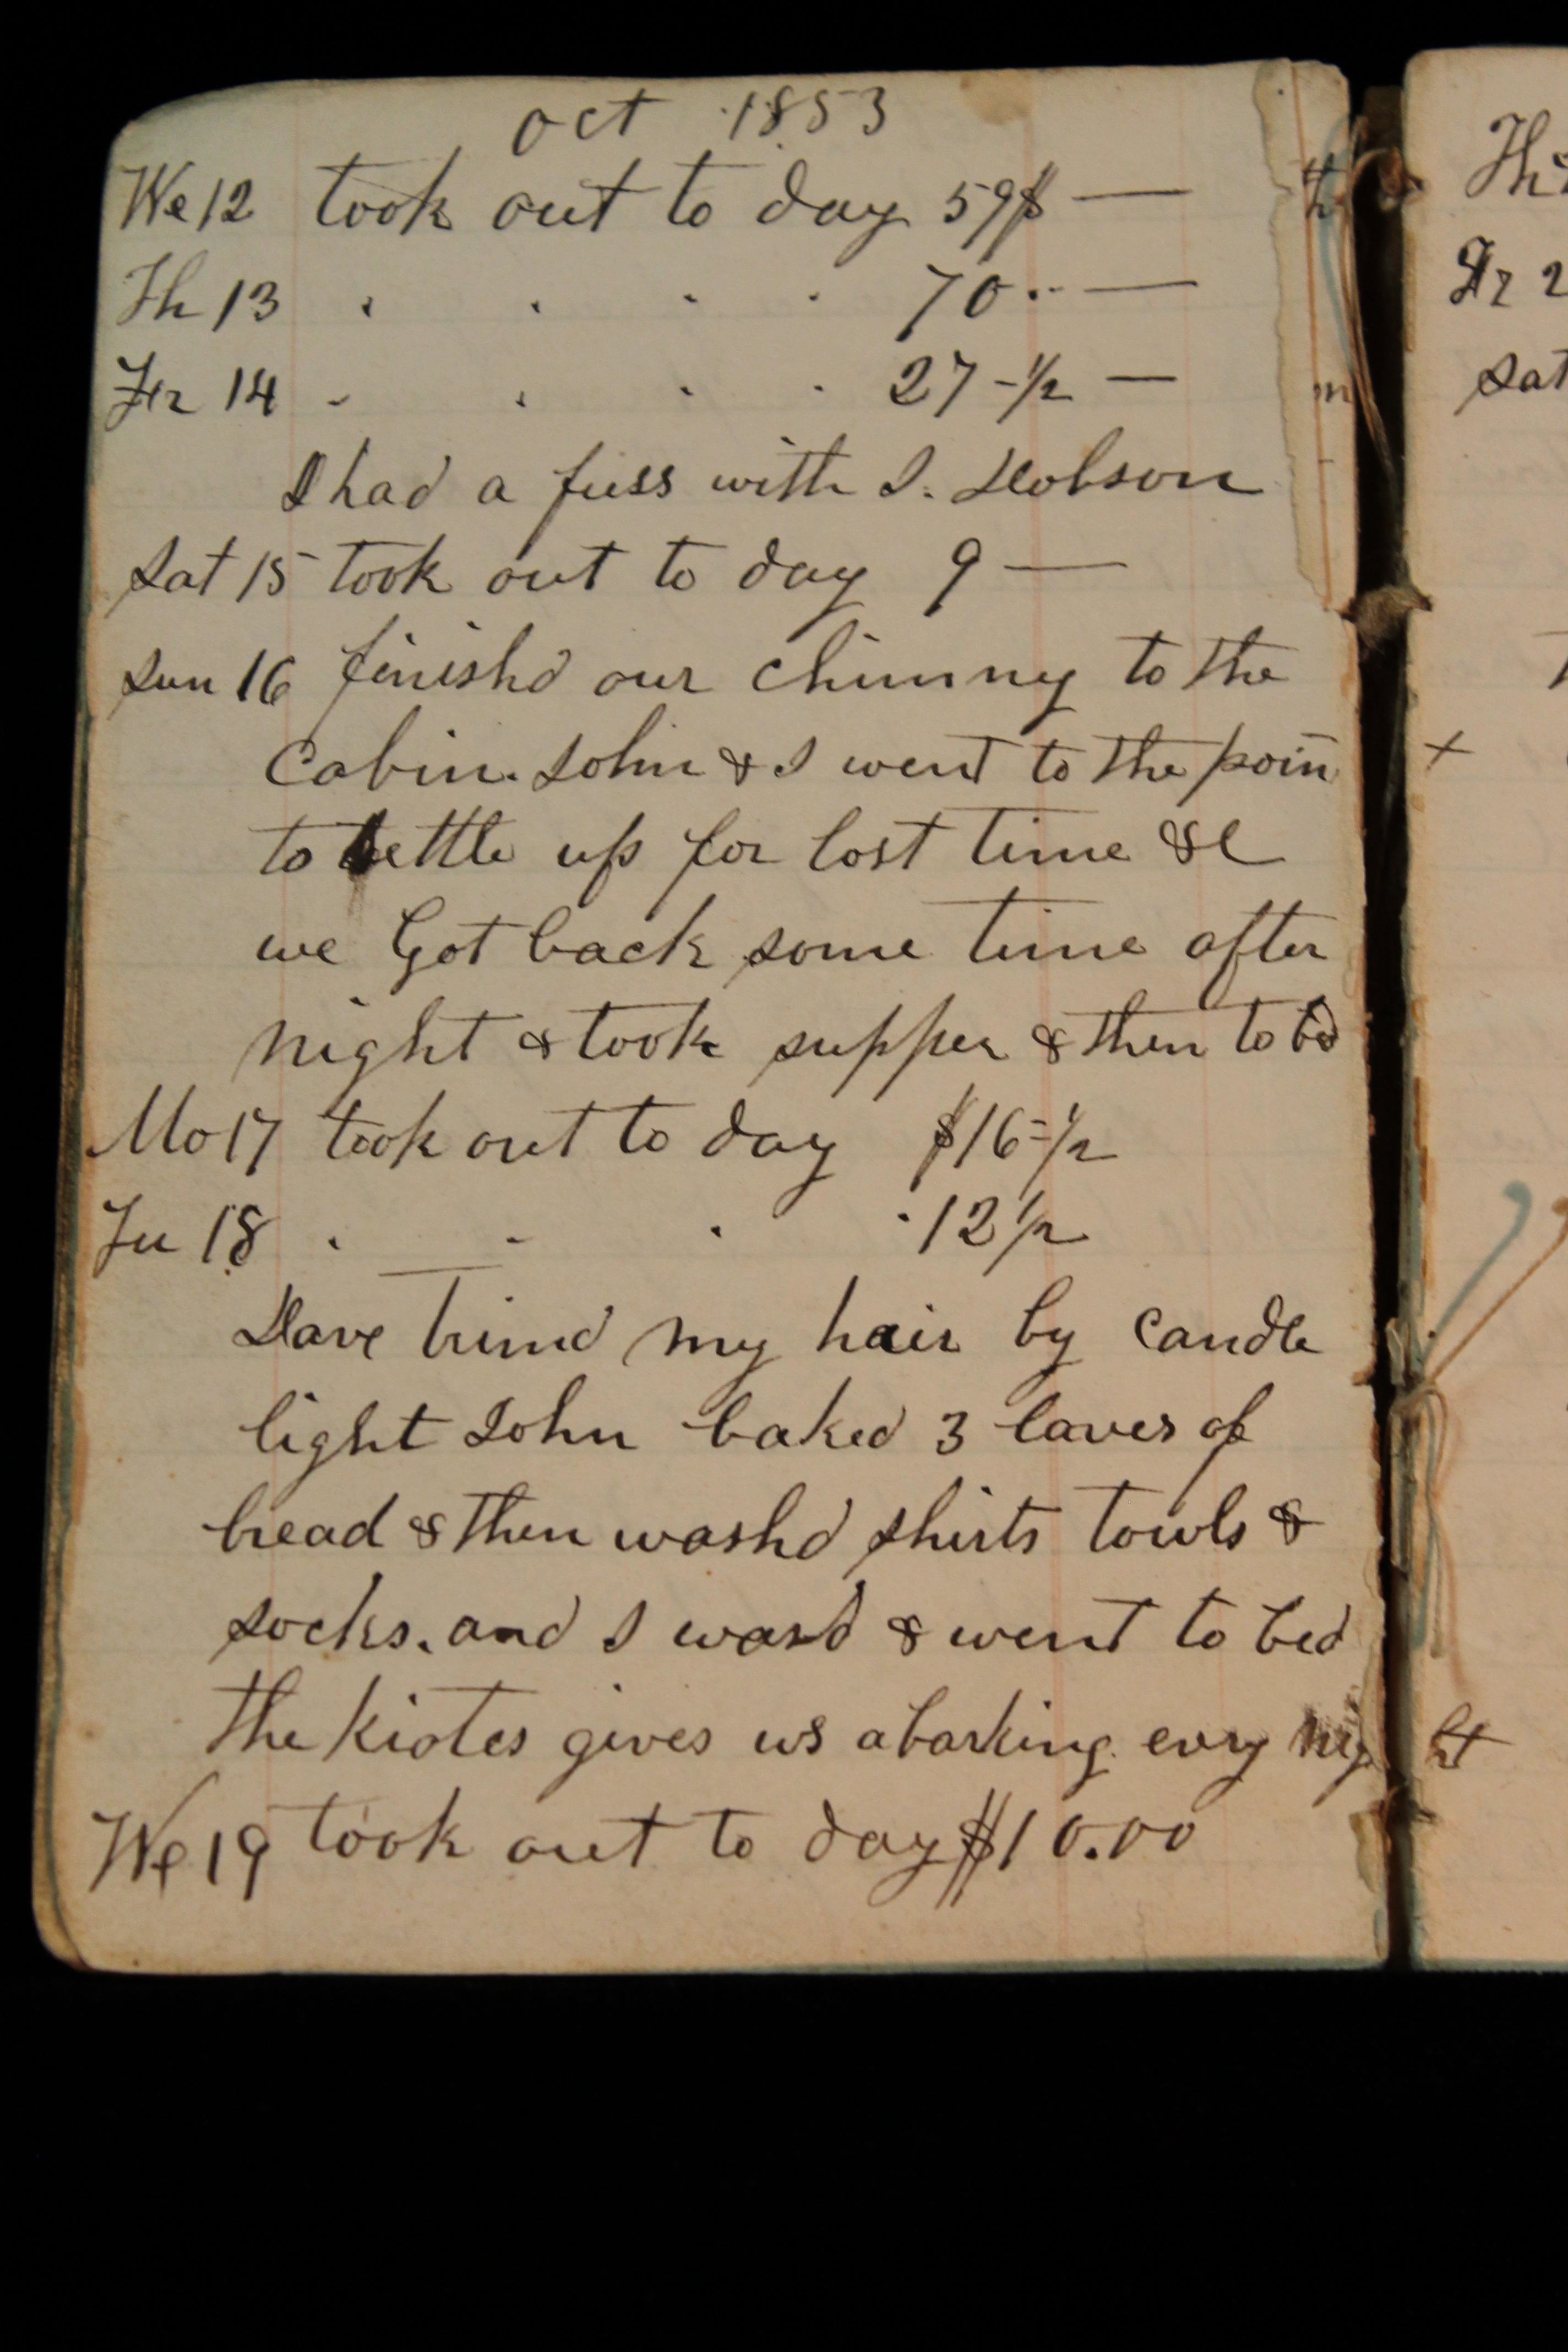 oct 1853
We 12 took out to day 59$ —
Th 13 " " " " 70 .. —
Fr 14 " " " " 27-1/2 —
I had a fuss with J. Dobson
Sat 15 took out to day 9 —
Sun 16 finishd our chimny to the
Cabin. John & I went to the poin
to settle up for lost time &c
we Got back some time after
night & took supper & then to bd
Mo 17 took out to day $16=1/2
Tu 18 " " " " 12 1/2
Dave trimd my hair by candle
light John baked 3 laves of
bread & then washd shirts towls &
socks. and I washd & went to bed
the kiotes gives us a barking evry nig ht
We 19 took out to day $10.00
Th
Fr 2
Sat